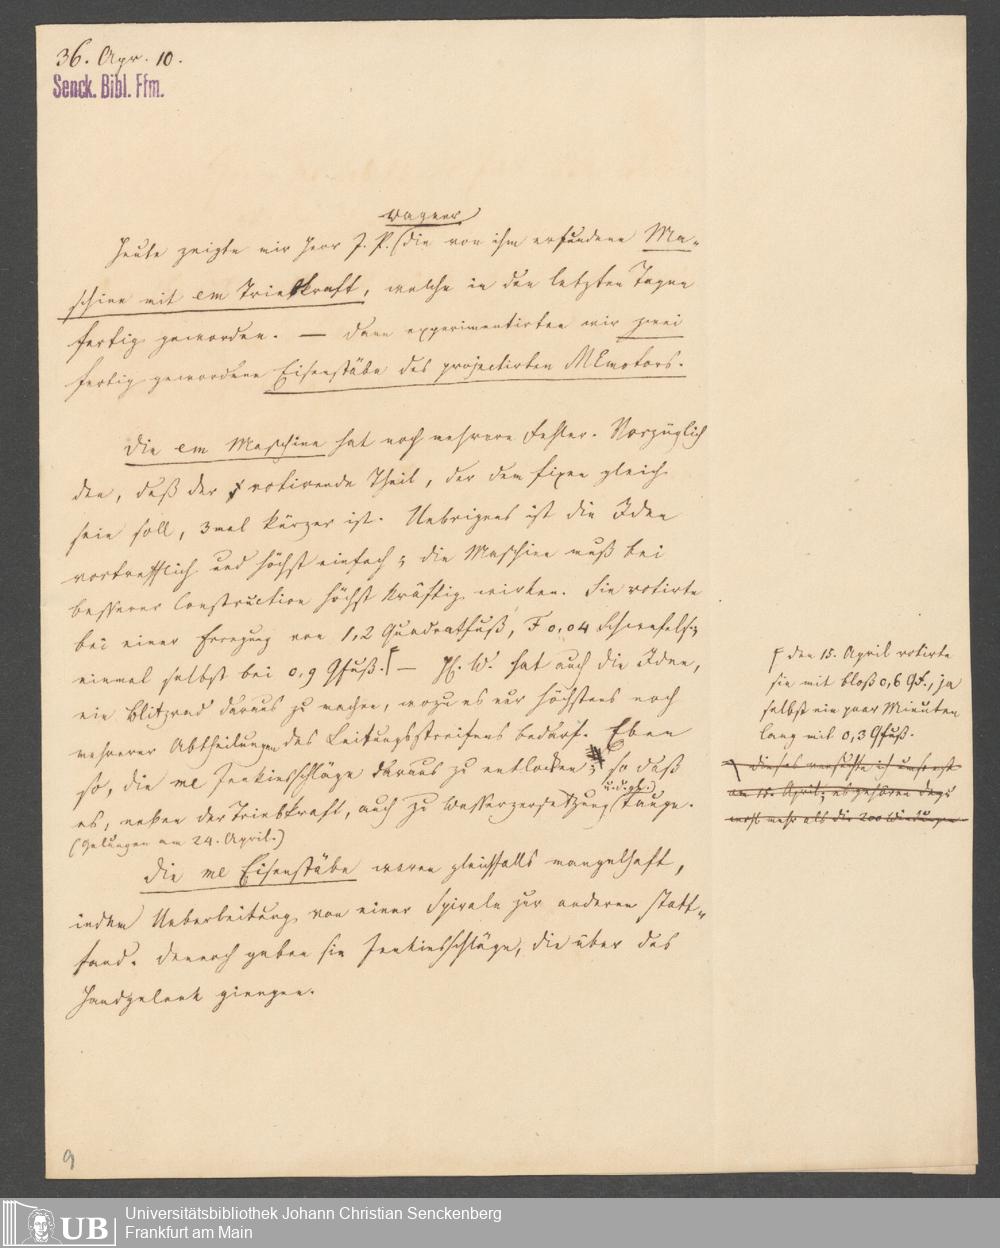 36. Apr. 10.
Senck. Bibl. Ffm.
Wagner
Heute zeigte mir Herr J. P. (die von ihm erfundene Ma-
schine mit em Triebkraft, welche in den letzten Tagen
fertig geworden. — Dann experimentirten wir zwei
fertig gewordene Eisenstäbe des projectirten MEmotors.
Die em Maschine hat noch mehrere Fehler. Vorzüglich
den, daß der rotirende Theil, der dem fixen gleich
sein soll, 3mal kürzer ist. Uebrigens ist die Idee
vortrefflich und höchst einfach; die Maschine muß bei
besserer Construction höchst kräftig wirken. Sie rotirte
bei einer Erregung von 1,2 Quadratfuß, F 0,04
einmal selbst bei 0,9 Qfuß. — H. W. hat auch die Idee,
ein Blitzrad daraus zu machen, wozu es nur höchstens noch
mehrerer Abtheilungen des Leitungsstreifens bedarf. Eben
so, die me Funkenschläge daraus zu entlocken; so daß
u.dgl.)
es, neben der Triebkraft, auch zu Wasserzersetzung (tauge.
(Gelungen am 24. April.)
Die me Eisenstäbe waren gleichfalls mangelhaft,
indem Ueberleitung von einer Spirale zur anderen statt-
fand. Dennoch gaben sie Funkenschläge, die über das
Handgelenk giengen.
den 15. April rotirte
sie mit bloß 0,6 Qf., ja
selbst ein paar Minuten
lang mit 0,3 Qfuß.
dieses versuchte ich umsonst
am 15. April; es gehören dazu
wohl mehr als die 200 Windungen
9
UB
Universitätsbibliothek Johann Christian Senckenberg
Frankfurt am Main